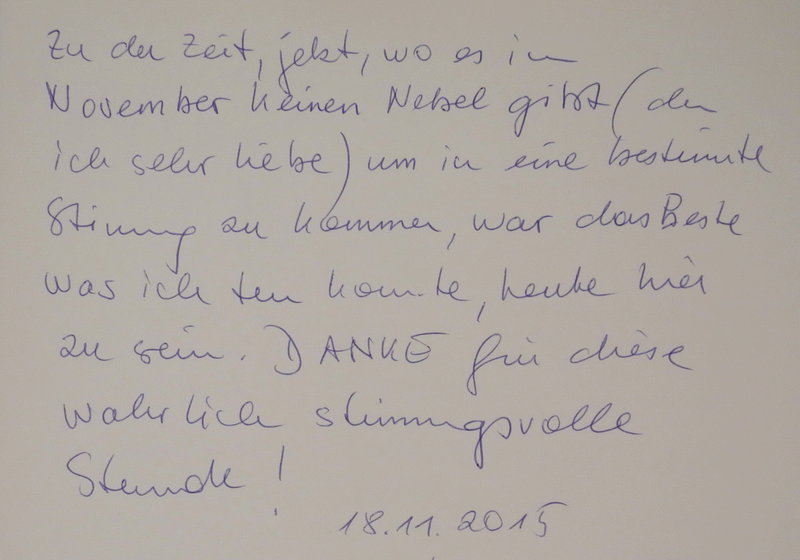 Zu der Zeit, jetzt, wo es im
November keinen Nebel gibt (den
ich sehr liebe) um in eine bestimmte
Stimmung zu kommen, war das Beste
was ich tun konnte, heute hier
zu sein. DANKE für diese
wahrlich stimmungsvolle
Stunde!
18.11.2015